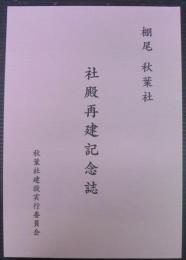 棚尾 秋葉社
社殿再建記念誌
秋葉社建設実行委員会